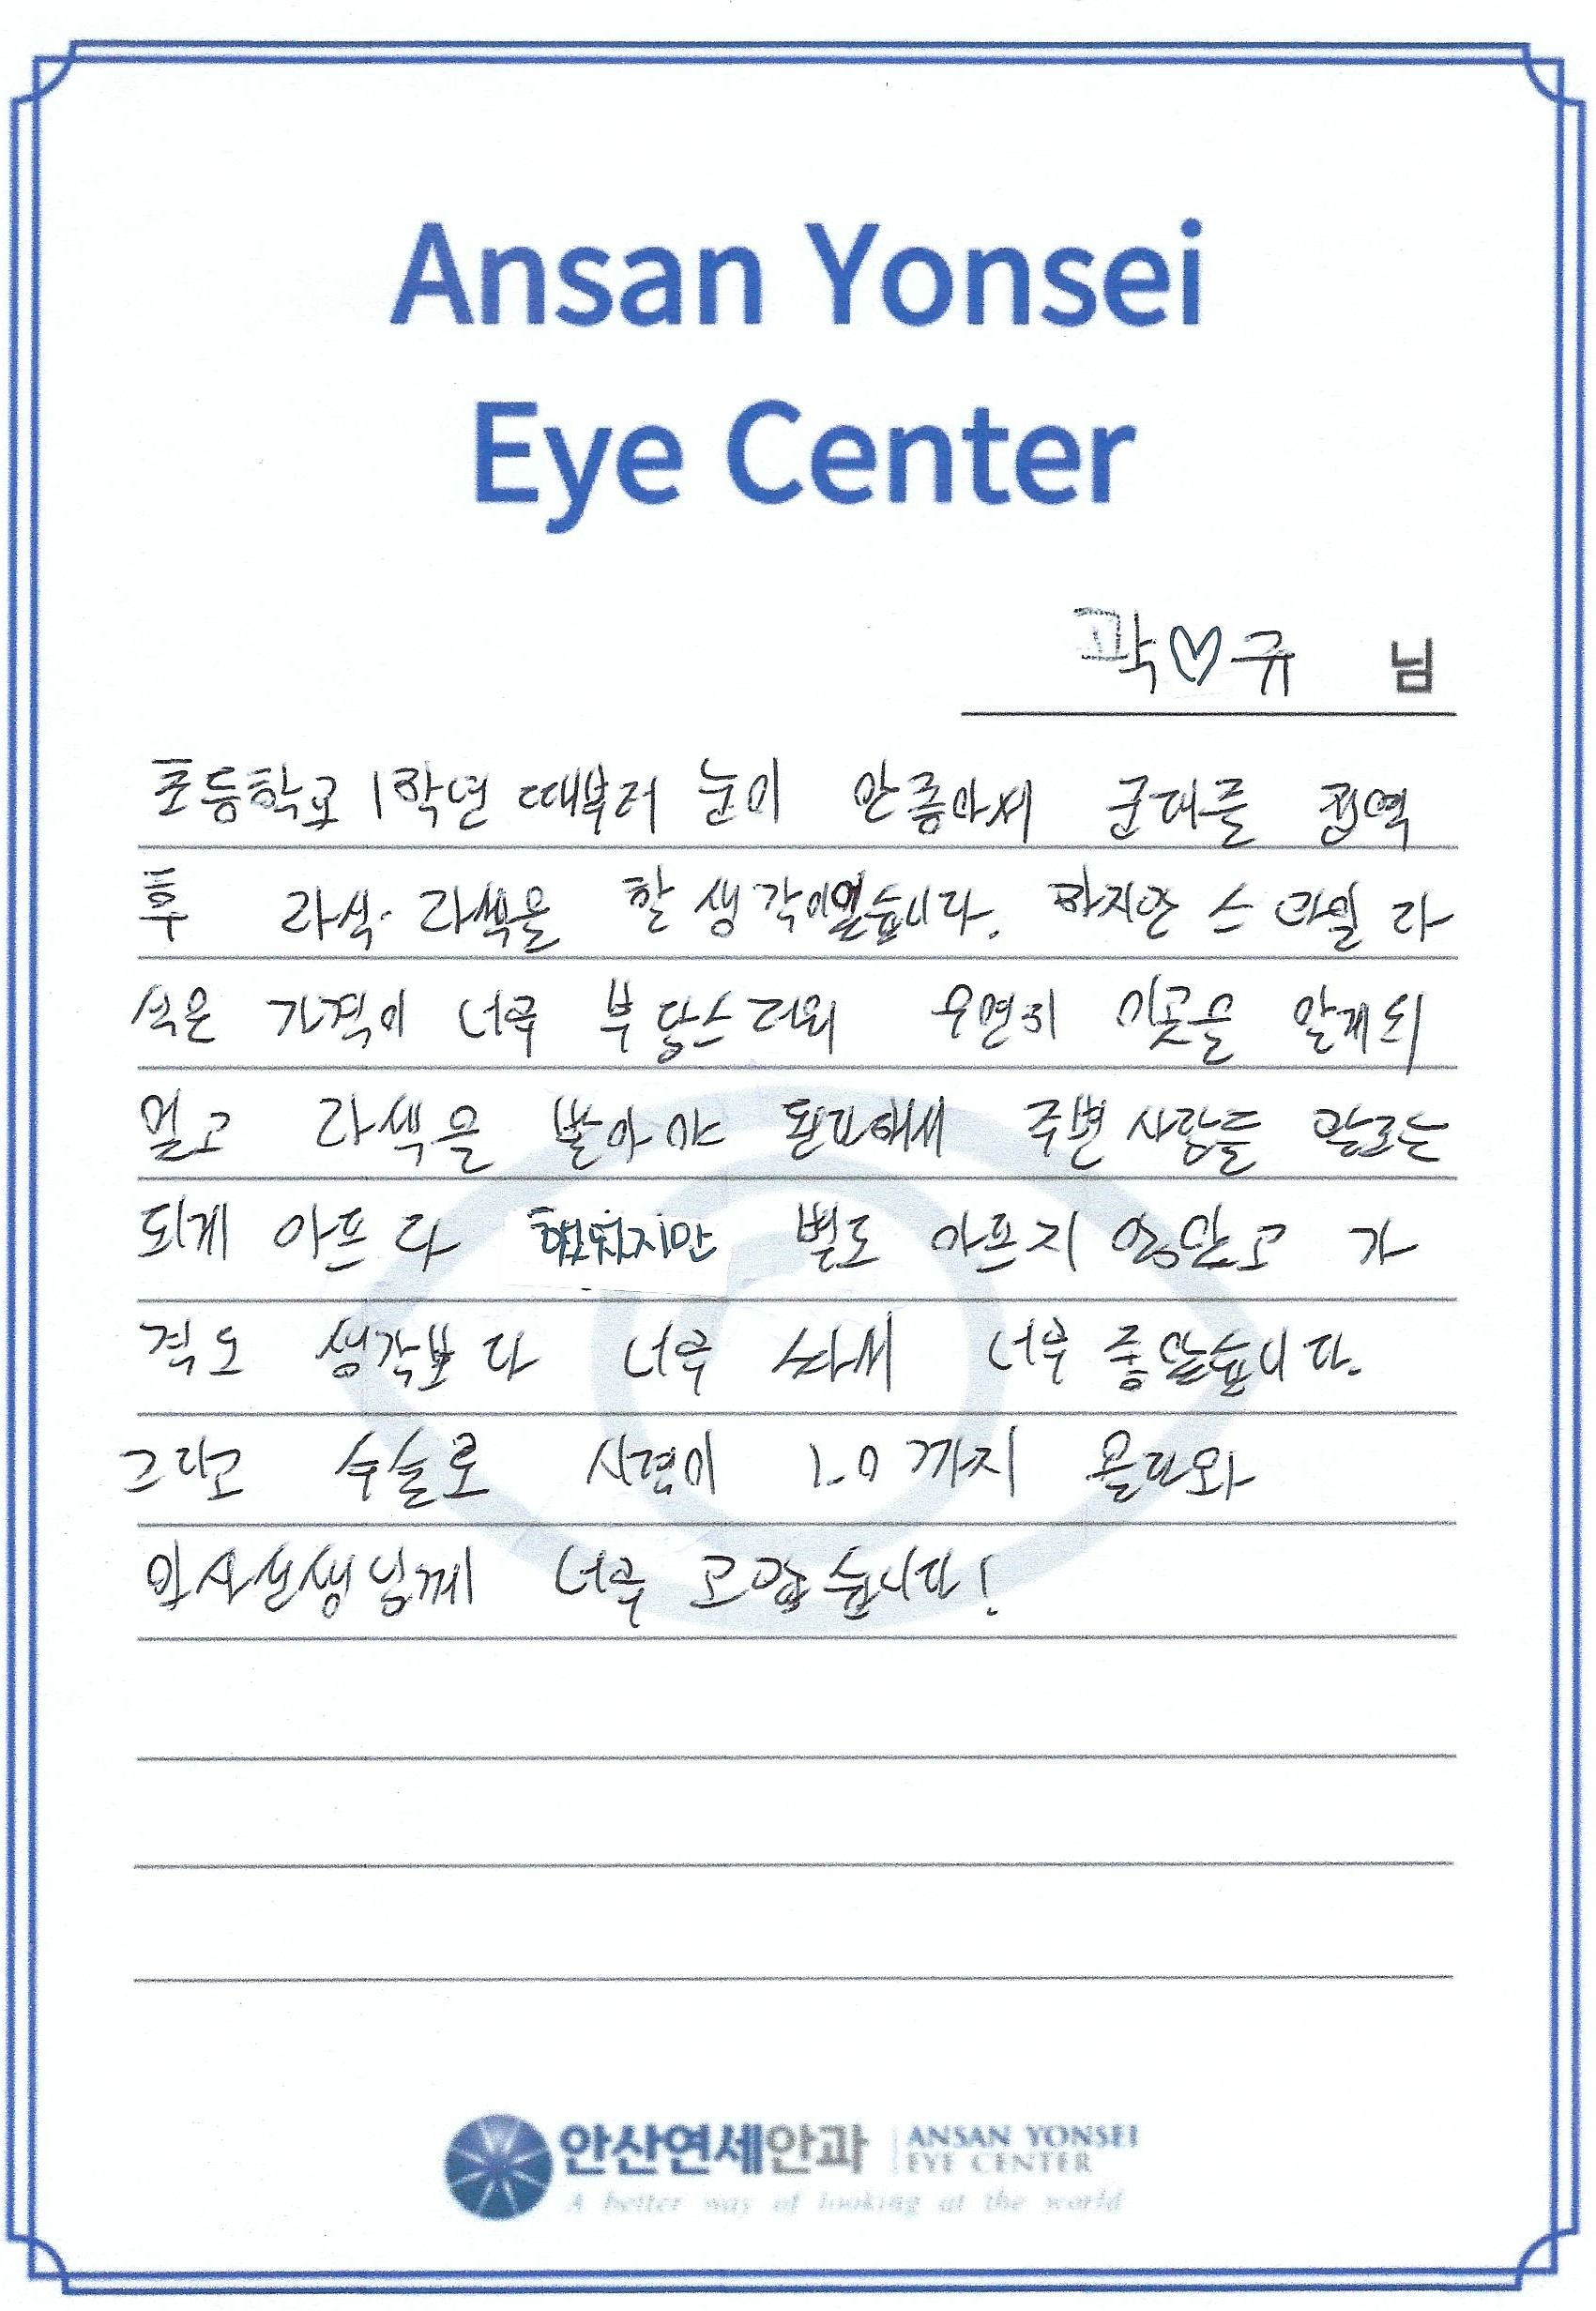 Ansan Yonsei
Eye Center
곽♡규 님
초등학교 1학년 때부터 눈이 안좋아서 군대를 전역
후 라식·라섹을 할 생각이였습니다. 하지만 스마일 라
식은 가격이 너무 부담스러워 우연히 이곳을 알게되
었고 라섹을 받아야 된다해서 주변 사람들 말로는
되게 아프다 했었지만 별로 아프지 않았고 가
격도 생각보다 너무 싸서 너무 좋았습니다.
그리고 수술로 시력이 1.0까지 올라와
의사선생님께 너무 고맙습니다!
안산연세안과 ANSAN YONSEI
EYE CENTER
A better way of looking at the world